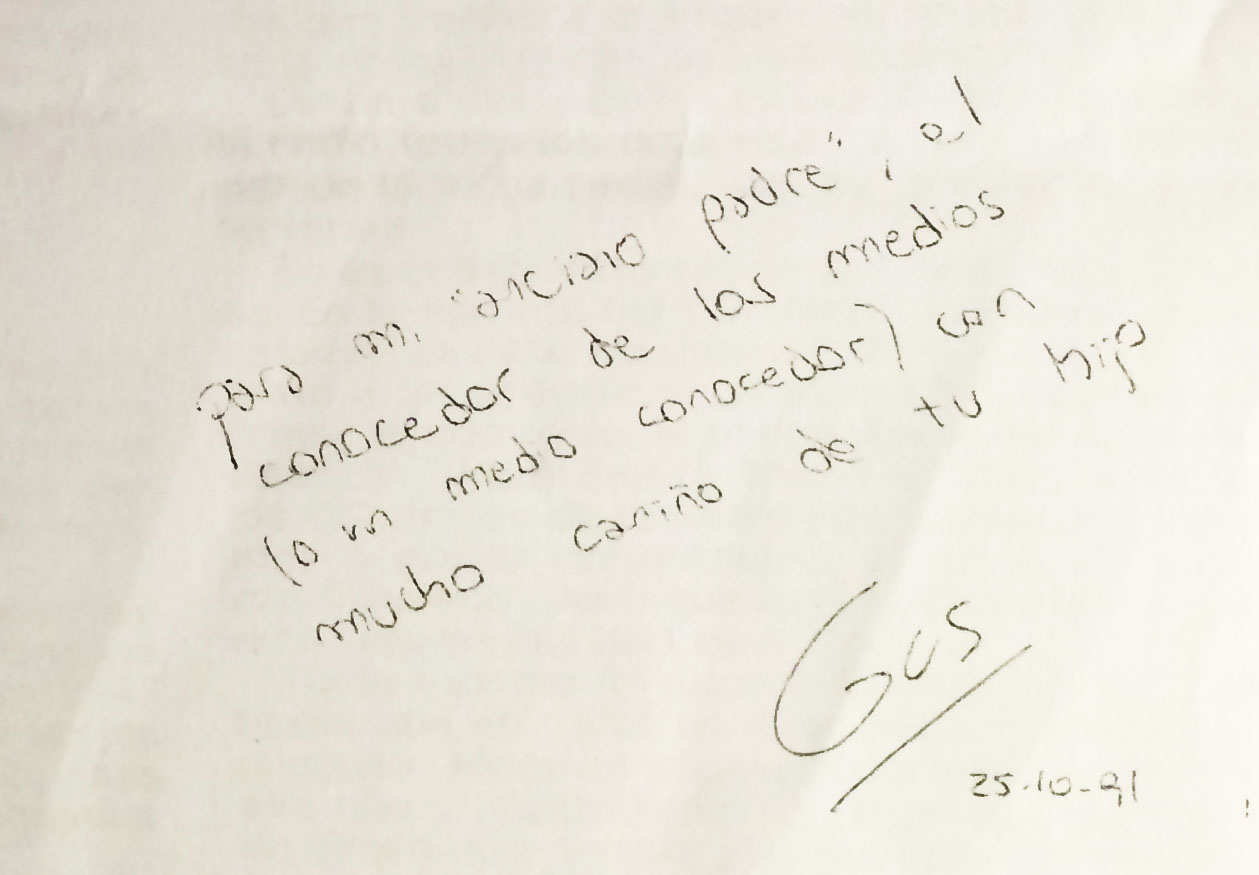 para mi "anciano padre", al
conocedor de los medios
(o un medio conocedor) con
mucho cariño de tu hijo
Gus
25-10-91